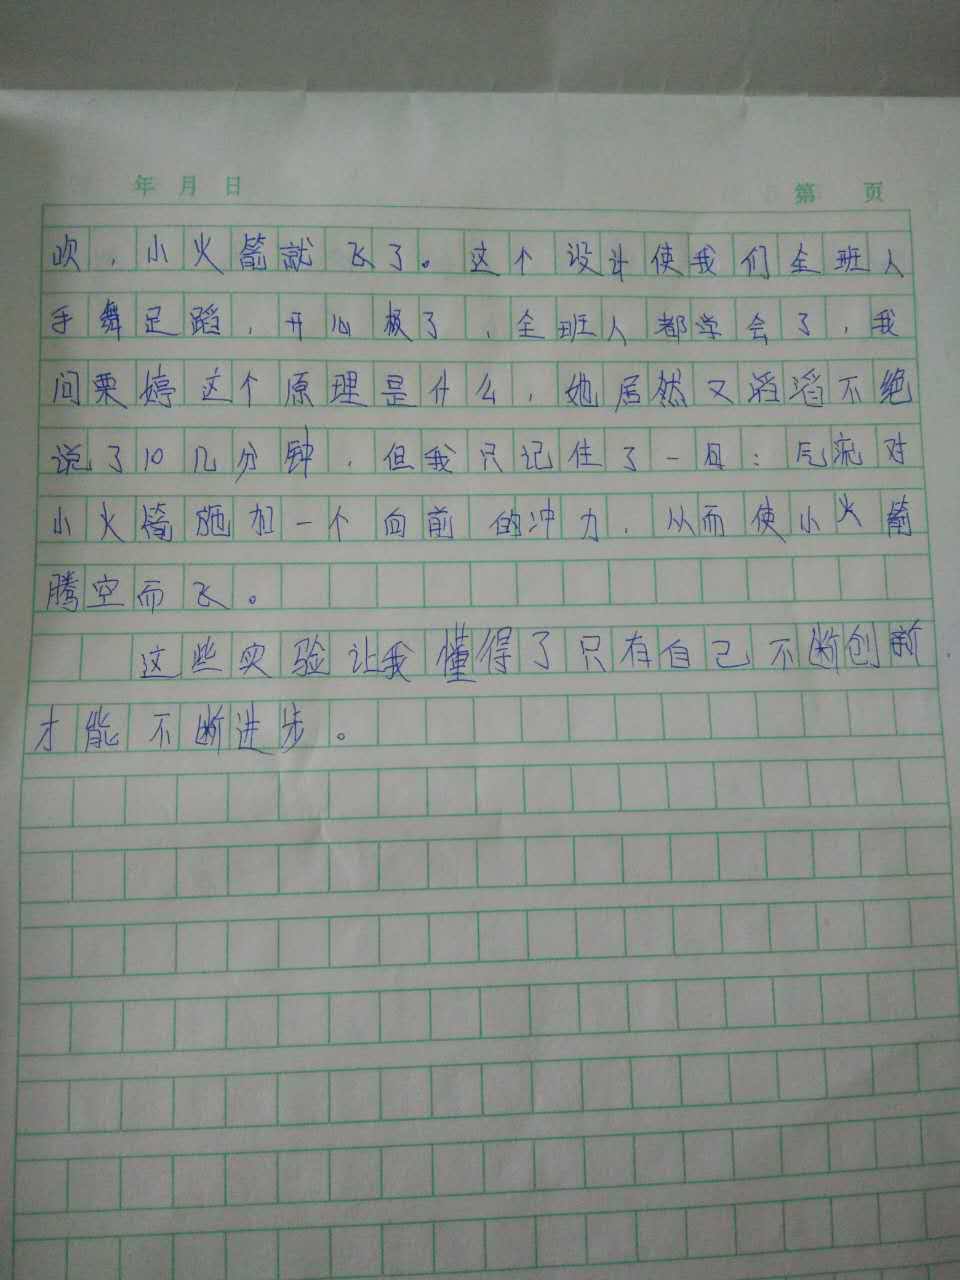 年 月 日
第 页
吹，小火箭就飞了。这个设计使我们全班人
手舞足蹈，开心极了，全班人都学会了，我
问栗婷这个原理是什么，她居然又滔滔不绝
说了10几分钟，但我只记住了一旦：气流对
小火箭施加一个向前的冲力，从而使小火箭
腾空而飞。
这些实验让我懂得了只有自己不断创新
才能不断进步。